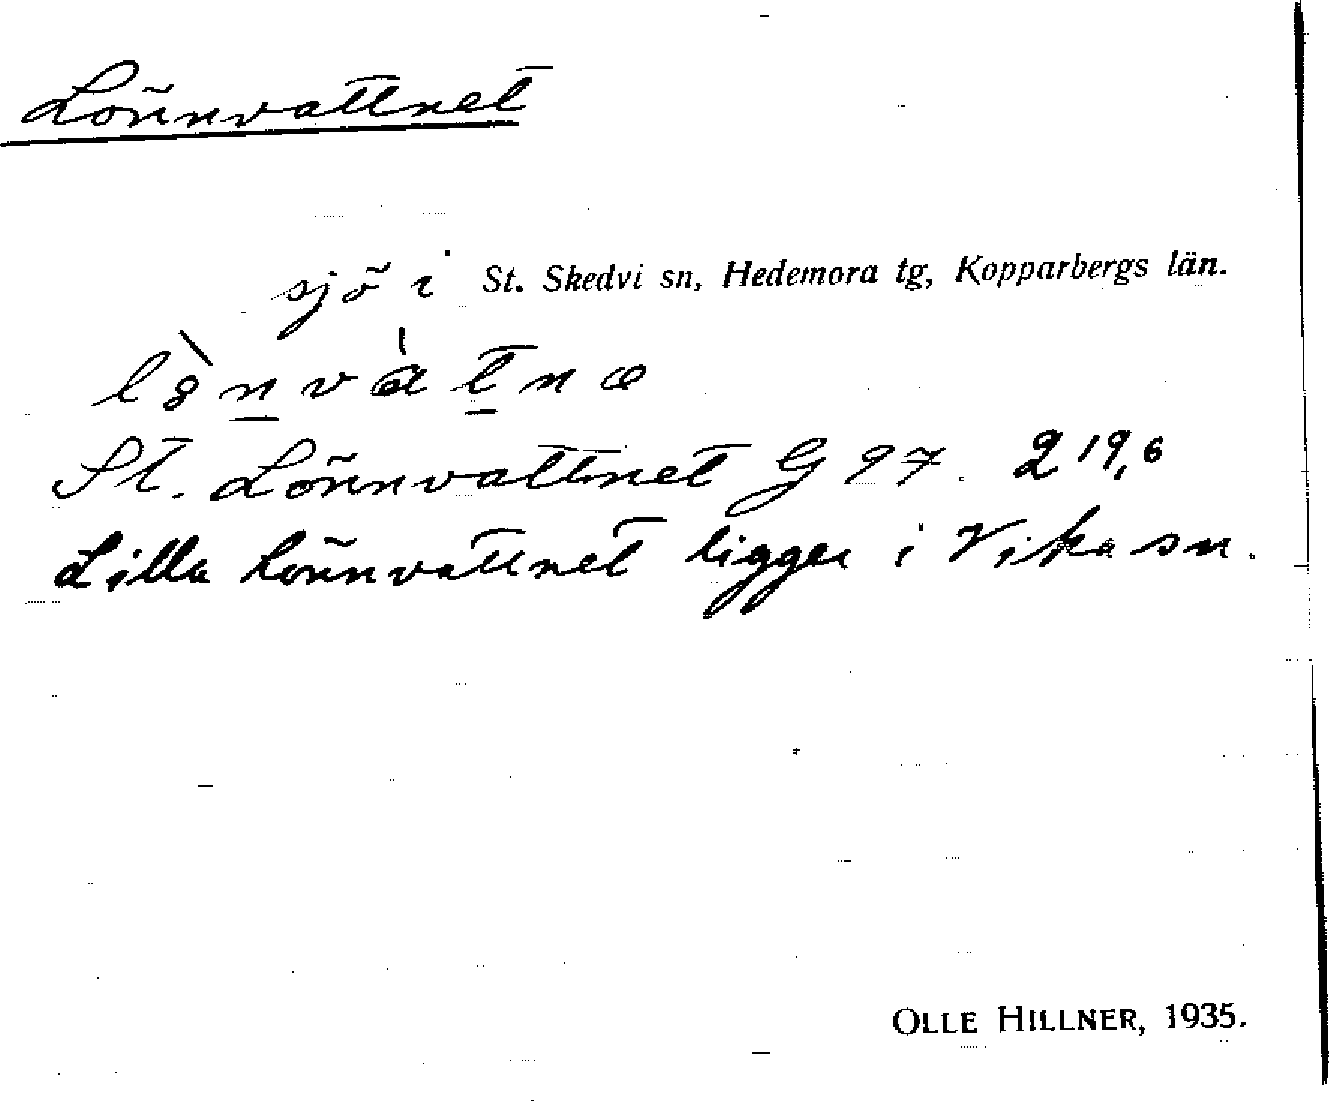 Lönnvattnet
sjö i St. Skedvi sn, Hedemora tg, Kopparbergs län.
St. Lönnvattnet G 97. 219,6
Lilla Lönnvattnet ligger i Vika sn.
OLLE HILLNER, 1935.